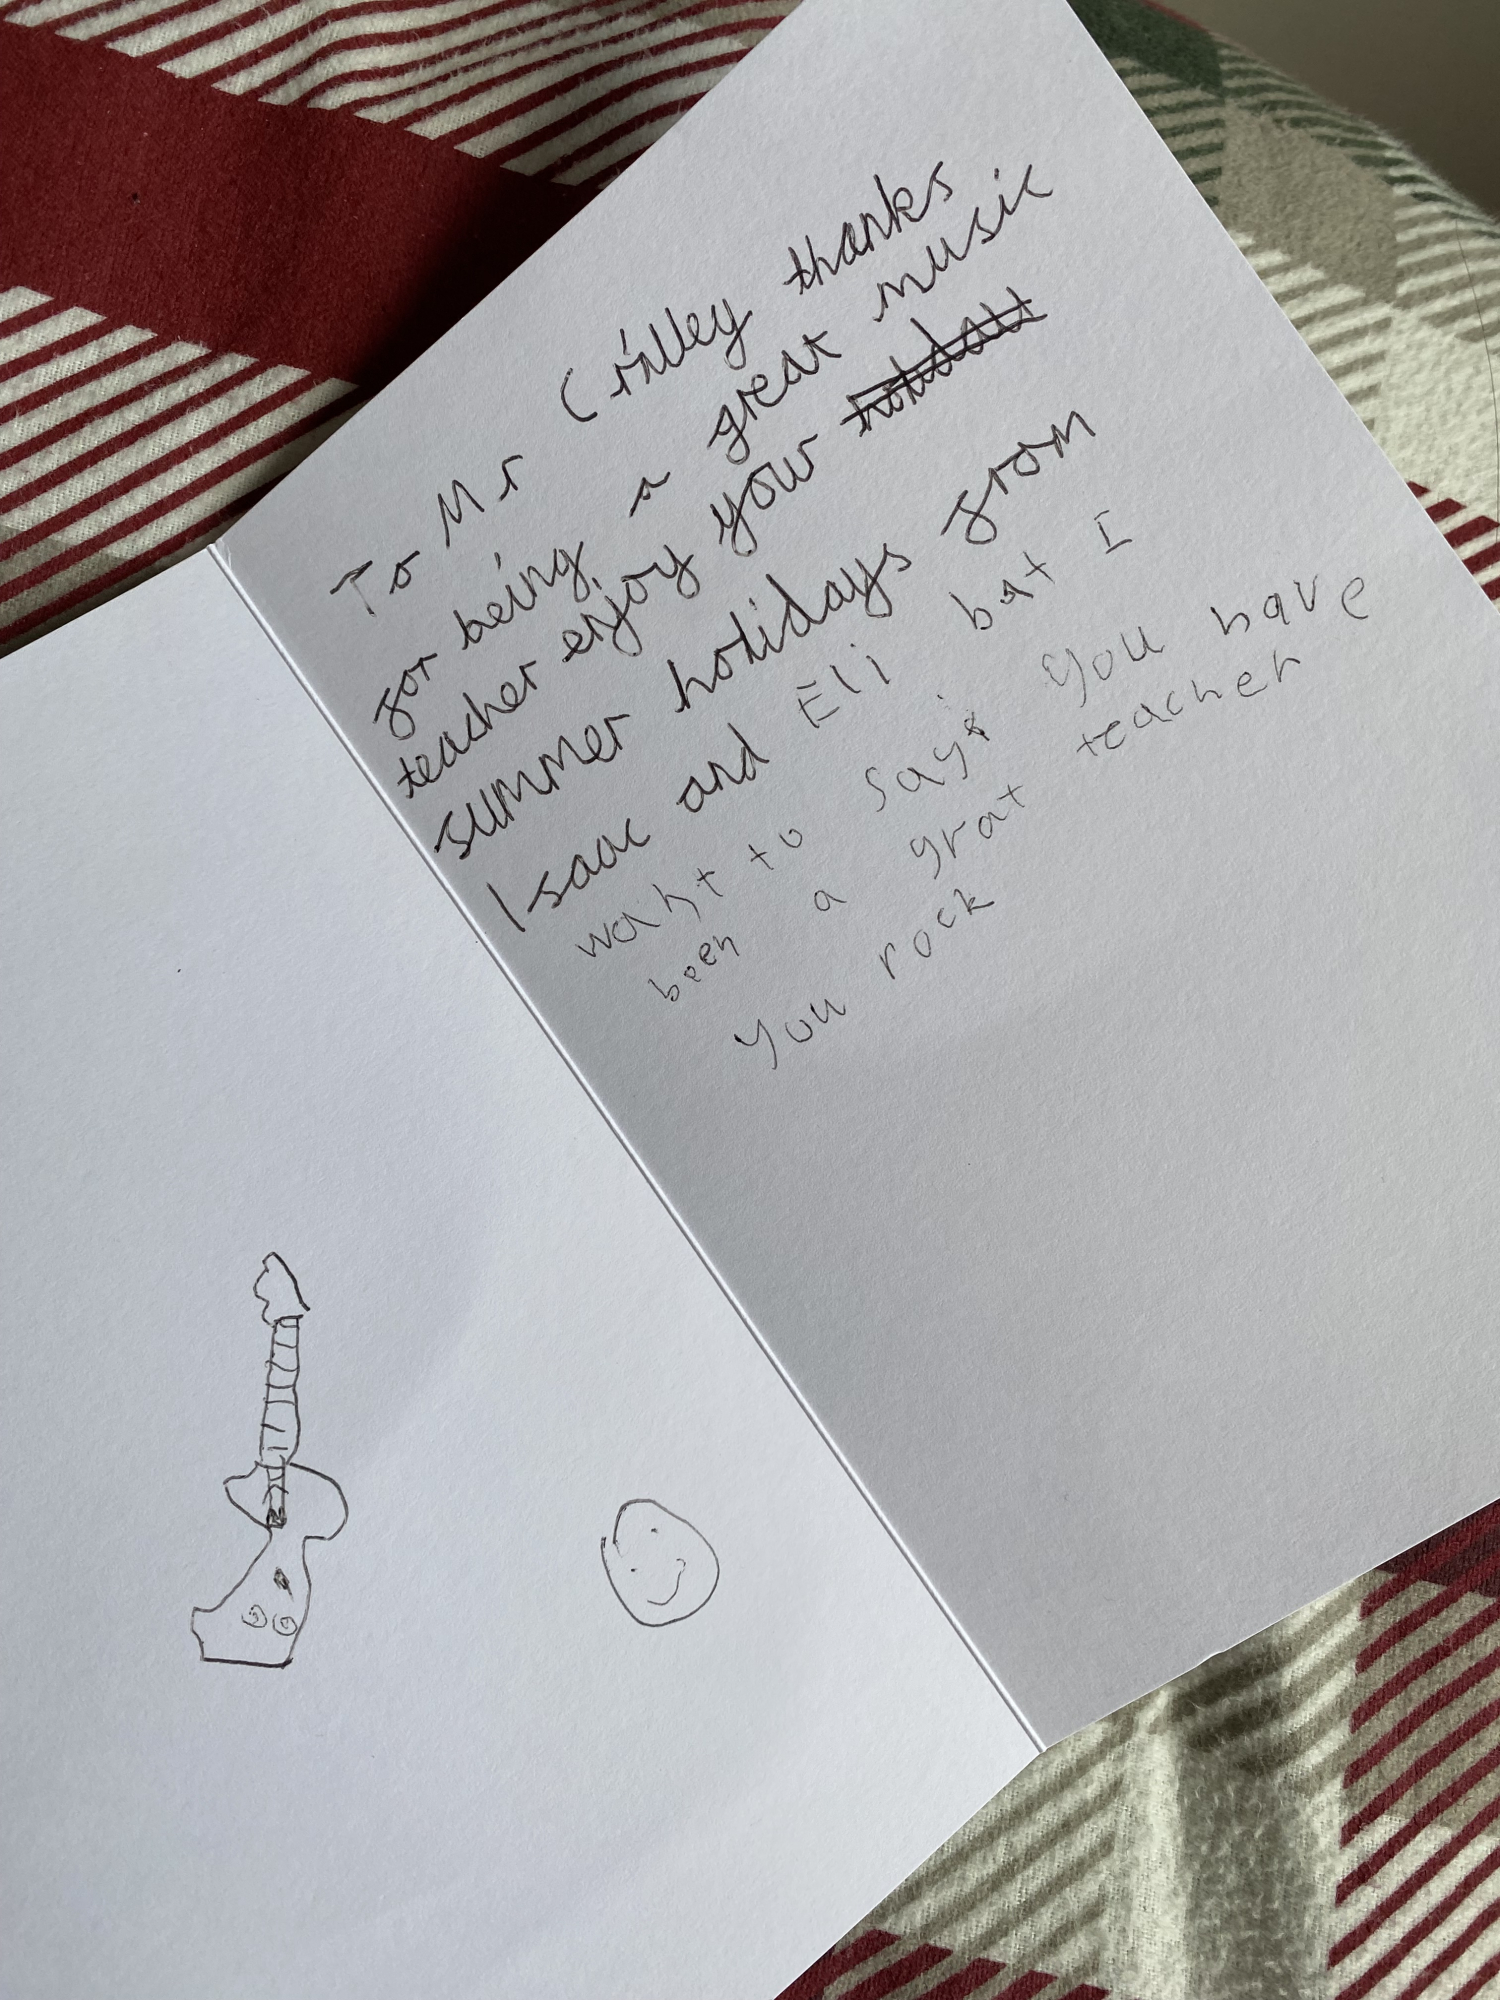 To Mr Crilley thanks
for being a great music
teacher enjoy your
summer holidays from
Isaac and Eli bat I
want to say you have
been a grat teacher
you rock